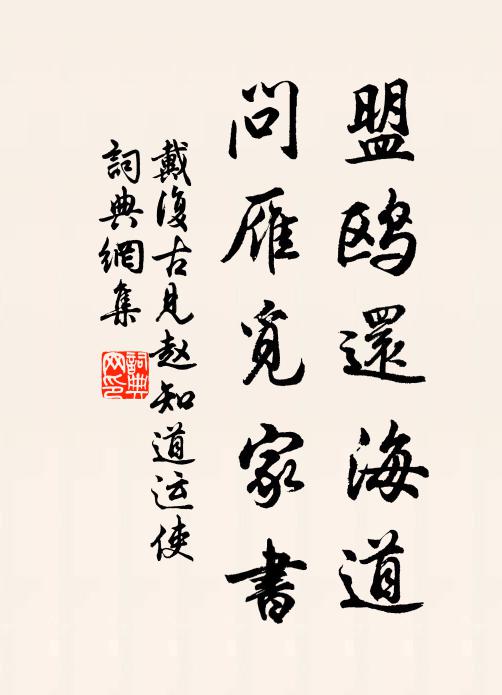 盟鸥還海道
問雁覓家書
戴復古見赵知道运使
詞典網集
詞典
网印